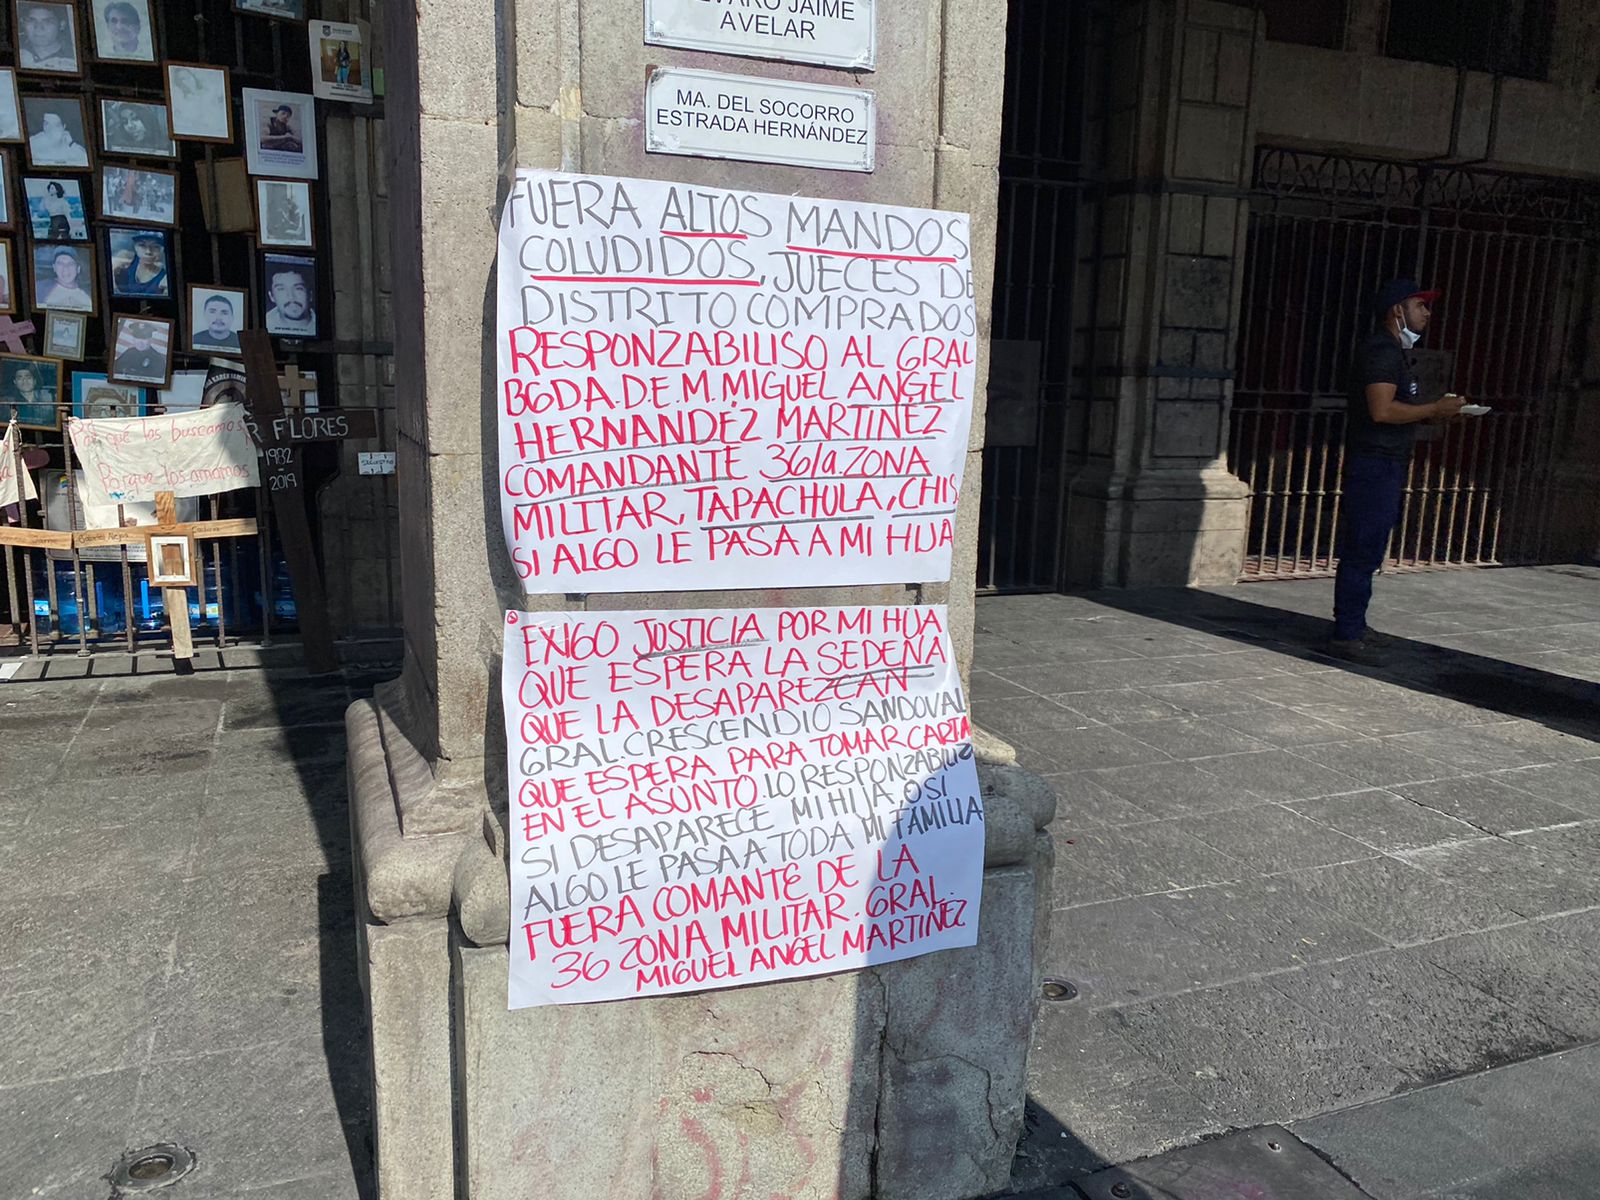 ÁLVARO JAIME
AVELAR
MA. DEL SOCORRO
ESTRADA HERNÁNDEZ
FUERA ALTOS MANDOS
COLUDIDOS, JUECES DE
DISTRITO COMPRADOS
RESPONZABILISO AL GRAL
BGDA. D.E.M. MIGUEL ANGEL
HERNANDEZ MARTINEZ
COMANDANTE 36/a. ZONA
MILITAR, TAPACHULA, CHIS.
SI ALGO LE PASA A MI HIJA
EXIGO JUSTICIA POR MI HIJA
QUE ESPERA LA SEDENA
QUE LA DESAPAREZCAN
GRAL. CRESCENDIO SANDOVAL
QUE ESPERA PARA TOMAR CARTA
EN EL ASUNTO. LO RESPONZABILIZ
SI DESAPARECE MI HIJA, O SI
ALGO LE PASA A TODA MI FAMILIA
FUERA COMANTE DE LA
36 ZONA MILITAR. GRAL.
MIGUEL ANGEL MARTINEZ
Por qué los buscamos
Porque los amamos
R FLORES
1982
-
2019